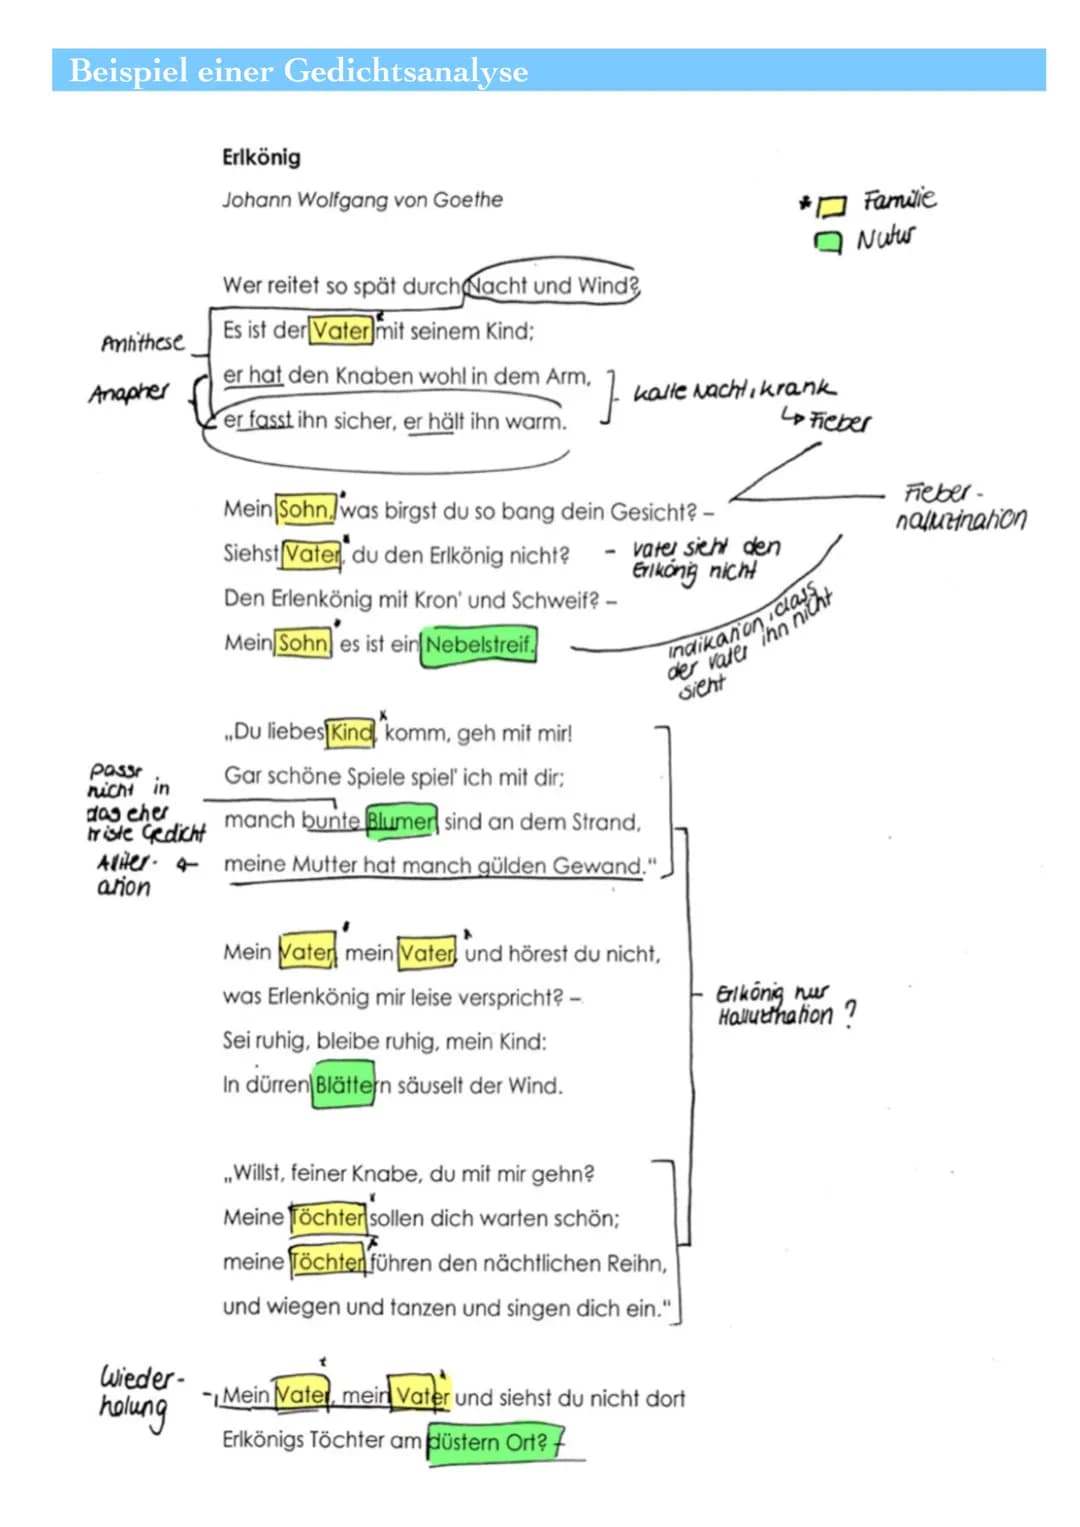 Beispiel einer Gedichtsanalyse
Erlkönig
Johann Wolfgang von Goethe
* Familie
Natur
Wer reitet so spät durch Nacht und Wind?
Es ist der Vater mit seinem Kind;
Antithese
er hat den Knaben wohl in dem Arm,
Anapher
kalte Nacht, krank
↳ Fieber
er fasst ihn sicher, er hält ihn warm.
Mein Sohn, was birgst du so bang dein Gesicht? –
Fieber-
halluzination
Siehst Vater, du den Erlkönig nicht?
- Vater sieht den
Erlkönig nicht
Den Erlenkönig mit Kron' und Schweif? –
Mein Sohn, es ist ein Nebelstreif.
indikation, dass
der Vater ihn nicht
sieht
„Du liebes Kind, komm, geh mit mir!
Gar schöne Spiele spiel' ich mit dir;
passt
nicht in
das eher
triste Gedicht
manch bunte Blumen sind an dem Strand,
Alliter-
ation
meine Mutter hat manch gülden Gewand."
Mein Vater, mein Vater, und hörest du nicht,
was Erlenkönig mir leise verspricht? –
Erlkönig nur
Halluzination ?
Sei ruhig, bleibe ruhig, mein Kind:
In dürren Blättern säuselt der Wind.
„Willst, feiner Knabe, du mit mir gehn?
Meine Töchter sollen dich warten schön;
meine Töchter führen den nächtlichen Reihn,
und wiegen und tanzen und singen dich ein."
Wieder-
holung
Mein Vater, mein Vater und siehst du nicht dort
Erlkönigs Töchter am düstern Ort? –